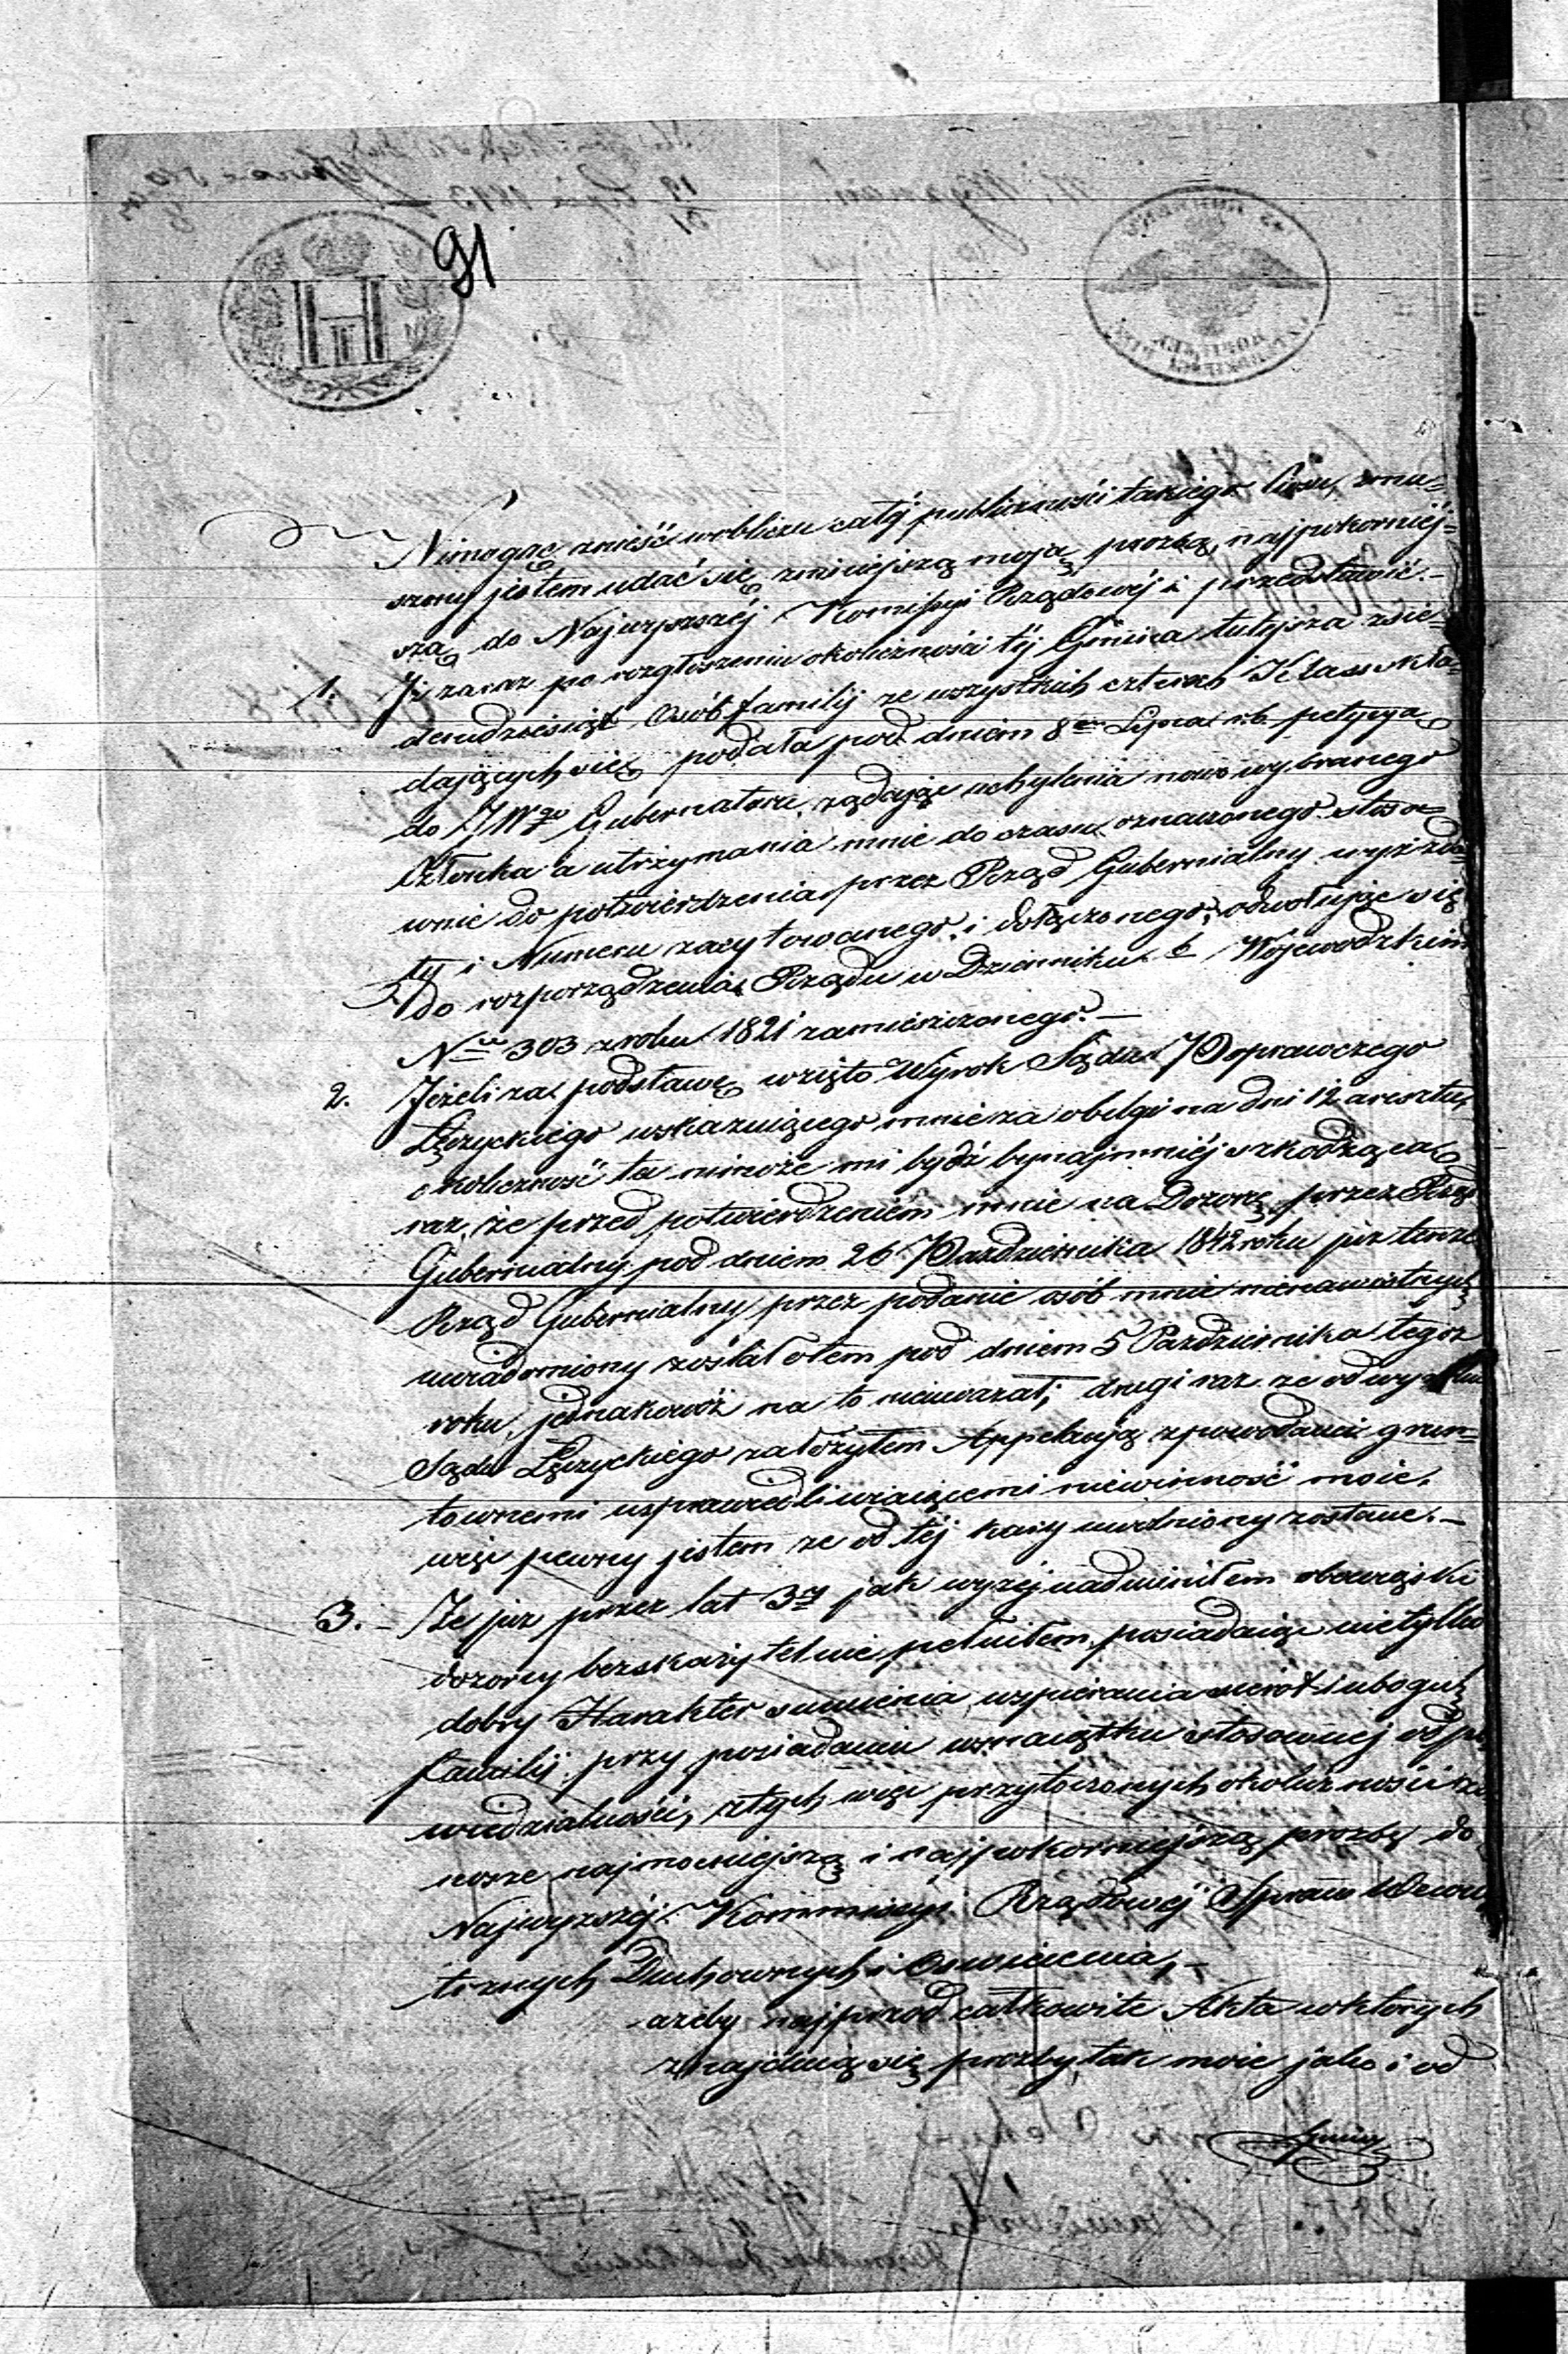 91
Nimogąc znieść wobliczu całéj publiczności takiego losu, zmu-
szony jestem udać się zniniejszą moją prozbą, najpokorniéj-
szą do Najwyższéj Komissyi Rządowéj i przedstawić.-
1. Iż zaraz po rozgłoszeniu okoliczności téj Gmina tutejsza zsie-
demdziesiąt Osób familij ze wszystkich czterech Klass skła-
dających się podała pod dniem 8m Lipca r.b. petycyą
do JWgo Gubernatora, żądając uchylenia nowo wybranego
Członka a utrzymania mnie do czasu oznaczonego stoso-
wnie do potwierdzenia przez Rząd Gubernialny wyż z da-
ty i Numeru zacytowanego, i dołączonego, odwołując się
do rozporządzenia Rządu w Dzienniku Wojewodzkim
Nru 303 z roku 1821 zamieszczonego.-
2. Jeżeli za podstawę wzięto Wyrok Sądu Poprawczego
Łęczyckiego wskazuiącego mnie za obelgi na dni 12 aresztu,
okoliczność ta nimoże mi bydź bynajmniéj szkodzącą
raz, że przed potwierdzeniem mnie na Dozorę przez Rząd
Gubernialny pod dniem 26 Pazdziernika 1842 roku już tenże
Rząd Gubernialny przez podanie osób mnie nienawistnych
uwiadomiony został o tem pod dniem 5 Pazdziernika tegoż
roku, jednakowóż na to nieuważał; drugi raz że od wyroku
Sądu Łęczyckiego założyłem Appelacją z powodami grun-
townemi usprawiedliwiaiącemi niewinność moie,
więc pewny jestem że od téj kary uwolniony zostane.-
3.- Że już przez lat 37 jak wyżej nadmieniłem obowiązki
dozorcy bezskazytelnie pełniłem, posiadaiąc nietylko
dobry Harakter sumienia, wspierania sierot i ubogich
familij przy posiadaniu wmaiątku stosownej odpo-
wiedzialności, ztych więc przytoczonych okoliczności za-
nosze najmocniejszą i najpokorniejszą prozbę do
Najwyższéj Kommissyi Rządowéj Spraw Wewnę-
trznych Duchownych i Oswiecenia,-
ażeby najprzod całkowite Akta wktorych
znajduią się prozby, tak moie jako i od
Gminy